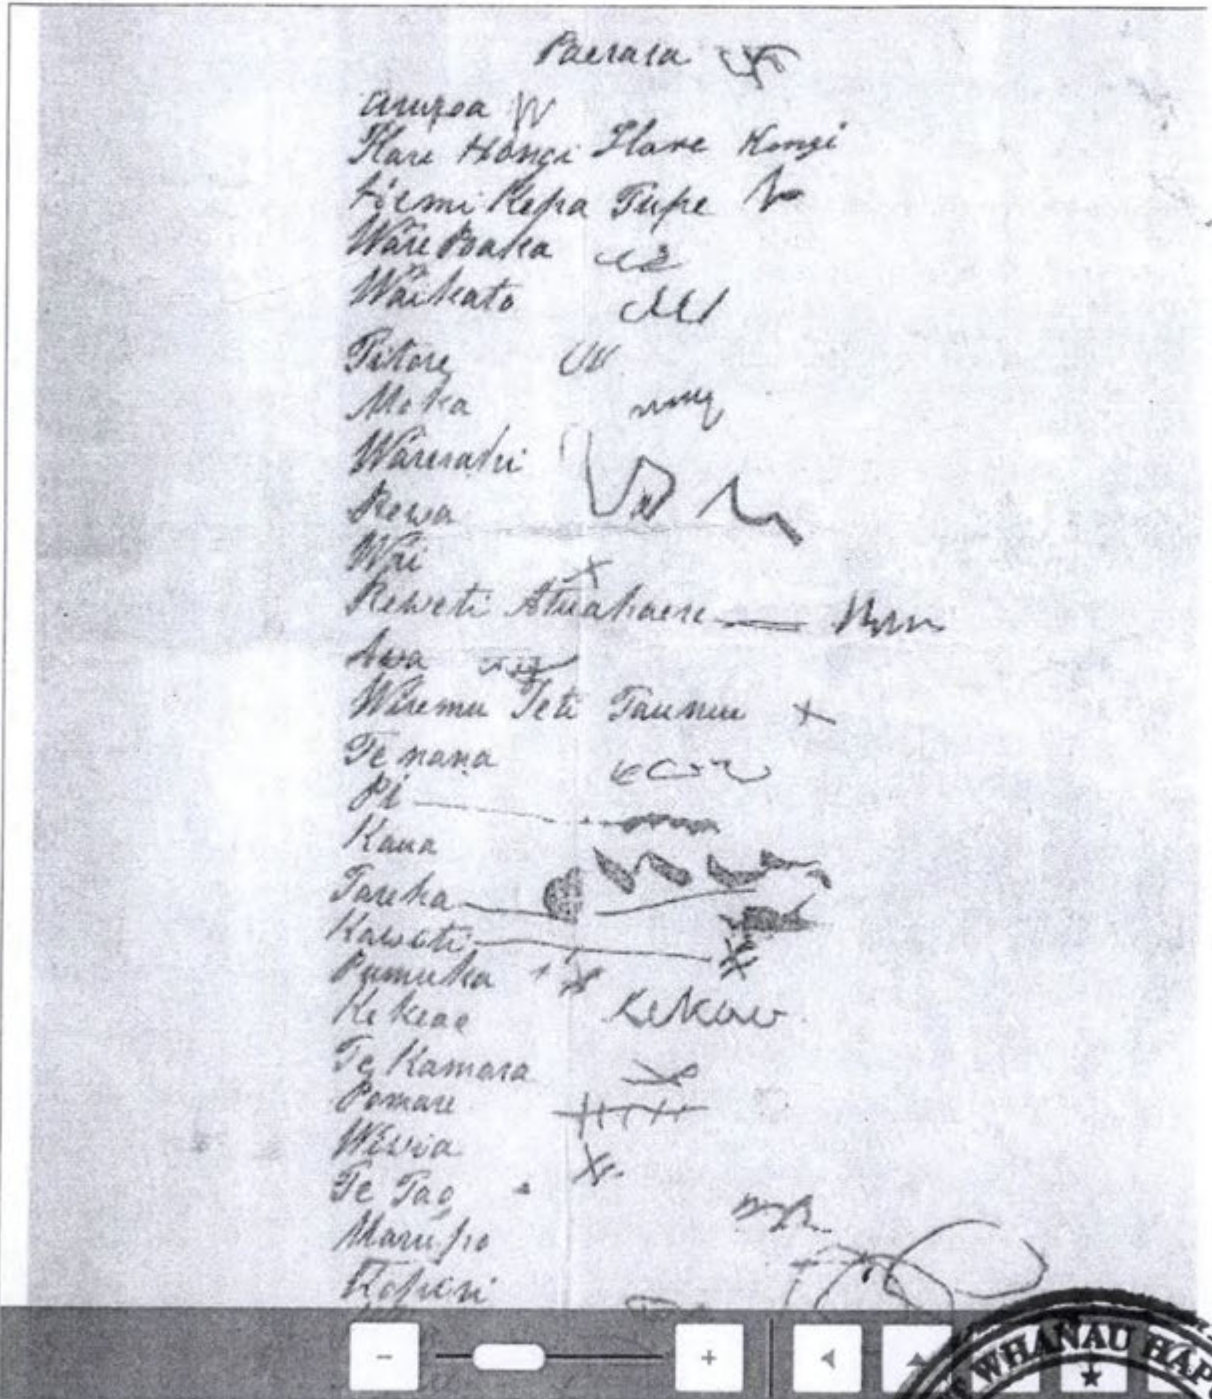 Paerara
Hare Hongi Hare Hongi
Hemi Kepa Tupe
Ware Poaka
Waikato
Titore
Moka
Warerahi
Rewa
Wai
Reweti Atuahaere
Awa
Wiremu Teti Taunui
Te nana
Pi
Kaua
Tareha
Kawiti
Pumuka
Kekeao Kekeao
Te Kamara
Pomare
Wiwia
Te Tao
Marupo
Kopiri
WHANAU HAP